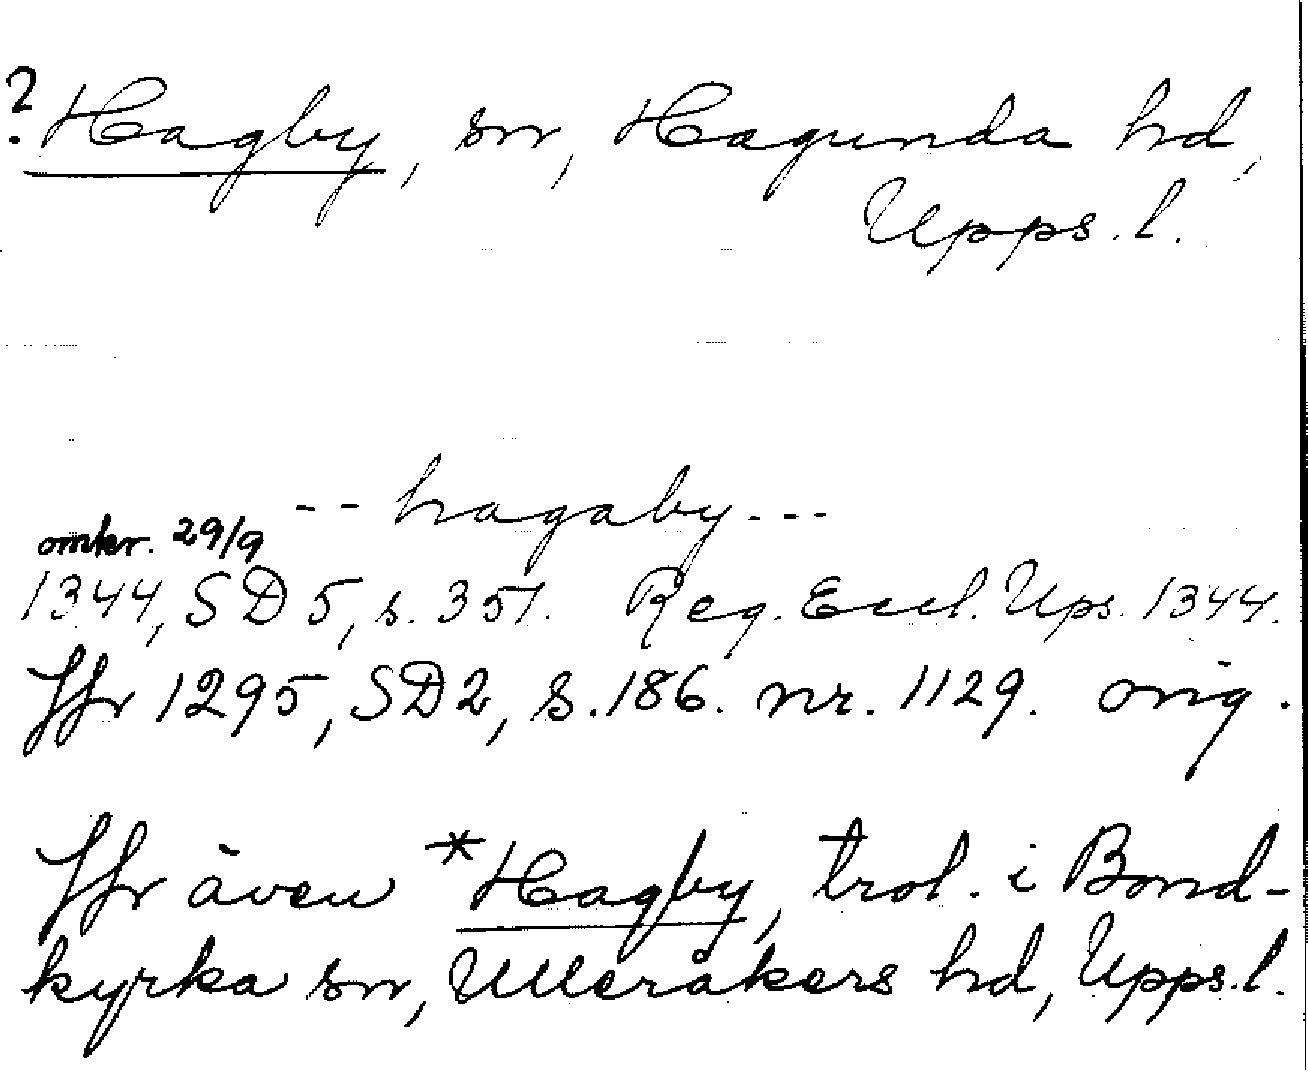 ? Hagby, sn, Hagunda hd,
Upps. l.
-- hagaby ---
omkr. 29/9
1344, SD 5, s. 351. Reg. Eccl. Ups. 1344.
Jfr 1295, SD 2, s. 186. nr. 1129. orig.
Jfr även *Hagby, trol. i Bond-
kyrka sn, Ulleråkers hd, Upps. l.